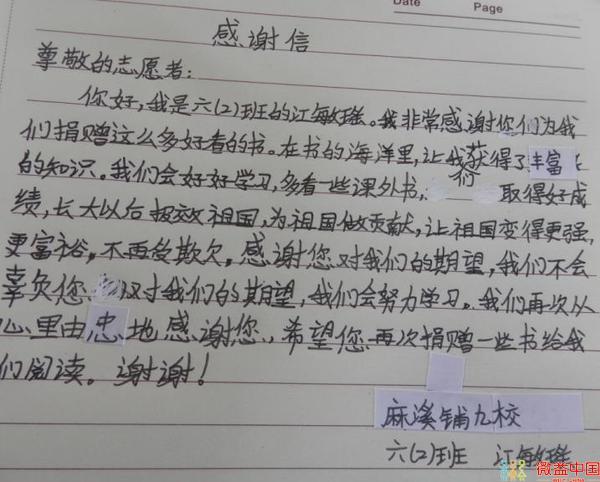 Date Page
感谢信
尊敬的志愿者：
你好，我是六(2)班的江敏瑶。我非常感谢您们为我
们捐赠这么多好看的书。在书的海洋里，让我们获得了丰富
的知识。我们会好好学习，多看一些课外书， 取得好成
绩，长大以后报效祖国，为祖国做贡献，让祖国变得更强，
更富裕，不再受欺欠。感谢您对我们的期望，我们不会
辜负您 对我们的期望，我们会努力学习。我们再次从
心里由忠地感谢您，希望您再次捐赠一些书给我
们阅读。谢谢！
麻溪铺九校
六(2)班 江敏瑶
微益中国